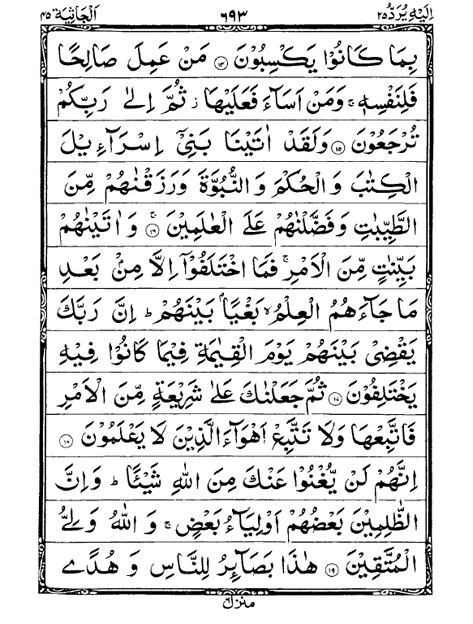 اِلَيْهِ يُرَدُّ ٢٥ ٦٩٣ اَلْجَاثِيَة ٤٥
بِمَا كَانُوْا يَكْسِبُوْنَ ﴿۱۴﴾ مَنْ عَمِلَ صَالِحًا
فَلِنَفْسِهٖ ۚ وَمَنْ اَسَآءَ فَعَلَيْهَا ؗ ثُمَّ اِلٰى رَبِّكُمْ
تُرْجَعُوْنَ ﴿۱۵﴾ وَلَقَدْ اٰتَيْنَا بَنِيْٓ اِسْرَآءِيْلَ
الْكِتٰبَ وَ الْحُكْمَ وَ النُّبُوَّةَ وَ رَزَقْنٰهُمْ مِّنَ
الطَّيِّبٰتِ وَ فَضَّلْنٰهُمْ عَلَى الْعٰلَمِيْنَ ﴿۱۶﴾ۚ وَ اٰتَيْنٰهُمْ
بَيِّنٰتٍ مِّنَ الْاَمْرِ ۚ فَمَا اخْتَلَفُوْٓا اِلَّا مِنْۢ بَعْدِ
مَا جَآءَهُمُ الْعِلْمُ ۙ بَغْيًاۢ بَيْنَهُمْ ؕ اِنَّ رَبَّكَ
يَقْضِيْ بَيْنَهُمْ يَوْمَ الْقِيٰمَةِ فِيْمَا كَانُوْا فِيْهِ
يَخْتَلِفُوْنَ ﴿۱۷﴾ ثُمَّ جَعَلْنٰكَ عَلٰى شَرِيْعَةٍ مِّنَ الْاَمْرِ
فَاتَّبِعْهَا وَلَا تَتَّبِعْ اَهْوَآءَ الَّذِيْنَ لَا يَعْلَمُوْنَ ﴿۱۸﴾
اِنَّهُمْ لَنْ يُّغْنُوْا عَنْكَ مِنَ اللّٰهِ شَيْئًا ؕ وَ اِنَّ
الظّٰلِمِيْنَ بَعْضُهُمْ اَوْلِيَآءُ بَعْضٍ ۚ وَ اللّٰهُ وَلِيُّ
الْمُتَّقِيْنَ ﴿۱۹﴾ هٰذَا بَصَآئِرُ لِلنَّاسِ وَ هُدًى
منزل